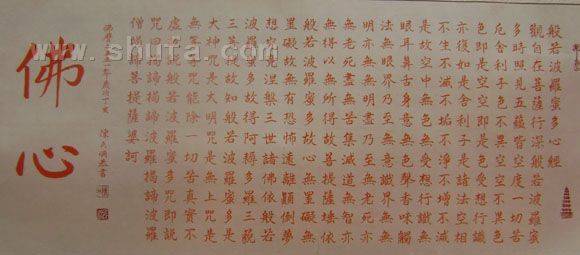 般若波羅蜜多心經
觀自在菩薩行深般若波羅蜜
多時照見五蘊皆空度一切苦
厄舍利子色不異空空不異色
色即是空空即是色受想行識
亦復如是舍利子是諸法空相
不生不滅不垢不淨不增不減
是故空中無色無受想行識無
眼耳鼻舌身意無色聲香味觸
法無眼界乃至無意識界無無
明亦無無明盡乃至無老死亦
無老死盡無苦集滅道無智亦
無得以無所得故菩提薩埵依
般若波羅蜜多故心無罣礙無
罣礙故無有恐怖遠離顛倒夢
想究竟涅槃三世諸佛依般若
波羅蜜多故得阿耨多羅三藐
三菩提故知般若波羅蜜多是
大神咒是大明咒是無上咒是
無等等咒能除一切苦真實不
虛故說般若波羅蜜多咒即說
咒曰揭諦揭諦波羅揭諦波羅
僧揭諦菩提薩婆訶
佛曆二五五一年歲次丁亥 陳 書
佛心
www.shufa.com